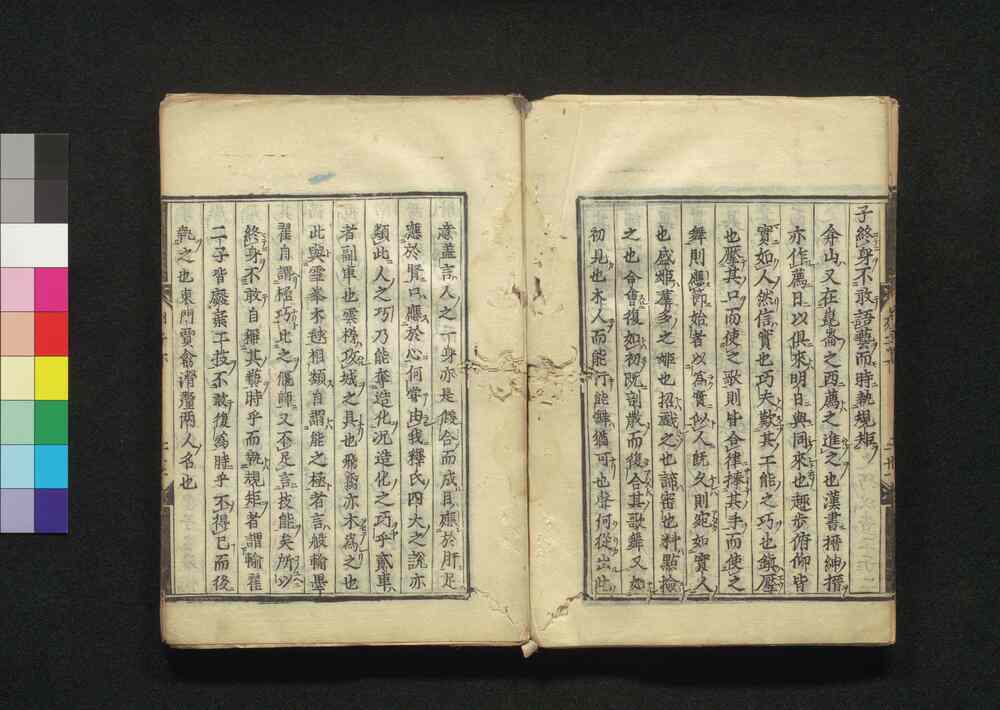 子終身不敢語藝而時執規矩
弇山又在崑崙之西薦之進之也漢書搢紳搢
亦作薦日以俱來明日與同來也趣歩俯仰皆
實如人然信實也巧夫歎其工能之巧也鎮壓
也壓其口而使之歌則皆合律捧其手而使之
舞則應節始者以爲實似人既久則宛如實人
也盛姬羣多之姬也招戲之也諦審也料點撿
之也合會復如初既剖散而復合其歌舞又如
初見也木人而能行能舞猶可也聲何從出此
意盖言人之一身亦是假合而成耳應於肝足
應於腎口應於心何嘗由我釋氏四大之說亦
類此人之巧乃能奪造化況造化之巧乎貳車
者副車也雲梯攻城之具也飛鳶亦木爲之也
此與靈峯木毬相類自謂能之極者言般輸墨
翟自謂極巧比之偃師又不足言技能矣所以
終身不敢自稱其藝時乎而執規矩者謂輸翟
二子皆廢棄工技不敢復爲時乎不得已而後
執之也東門賈禽滑釐兩人名也